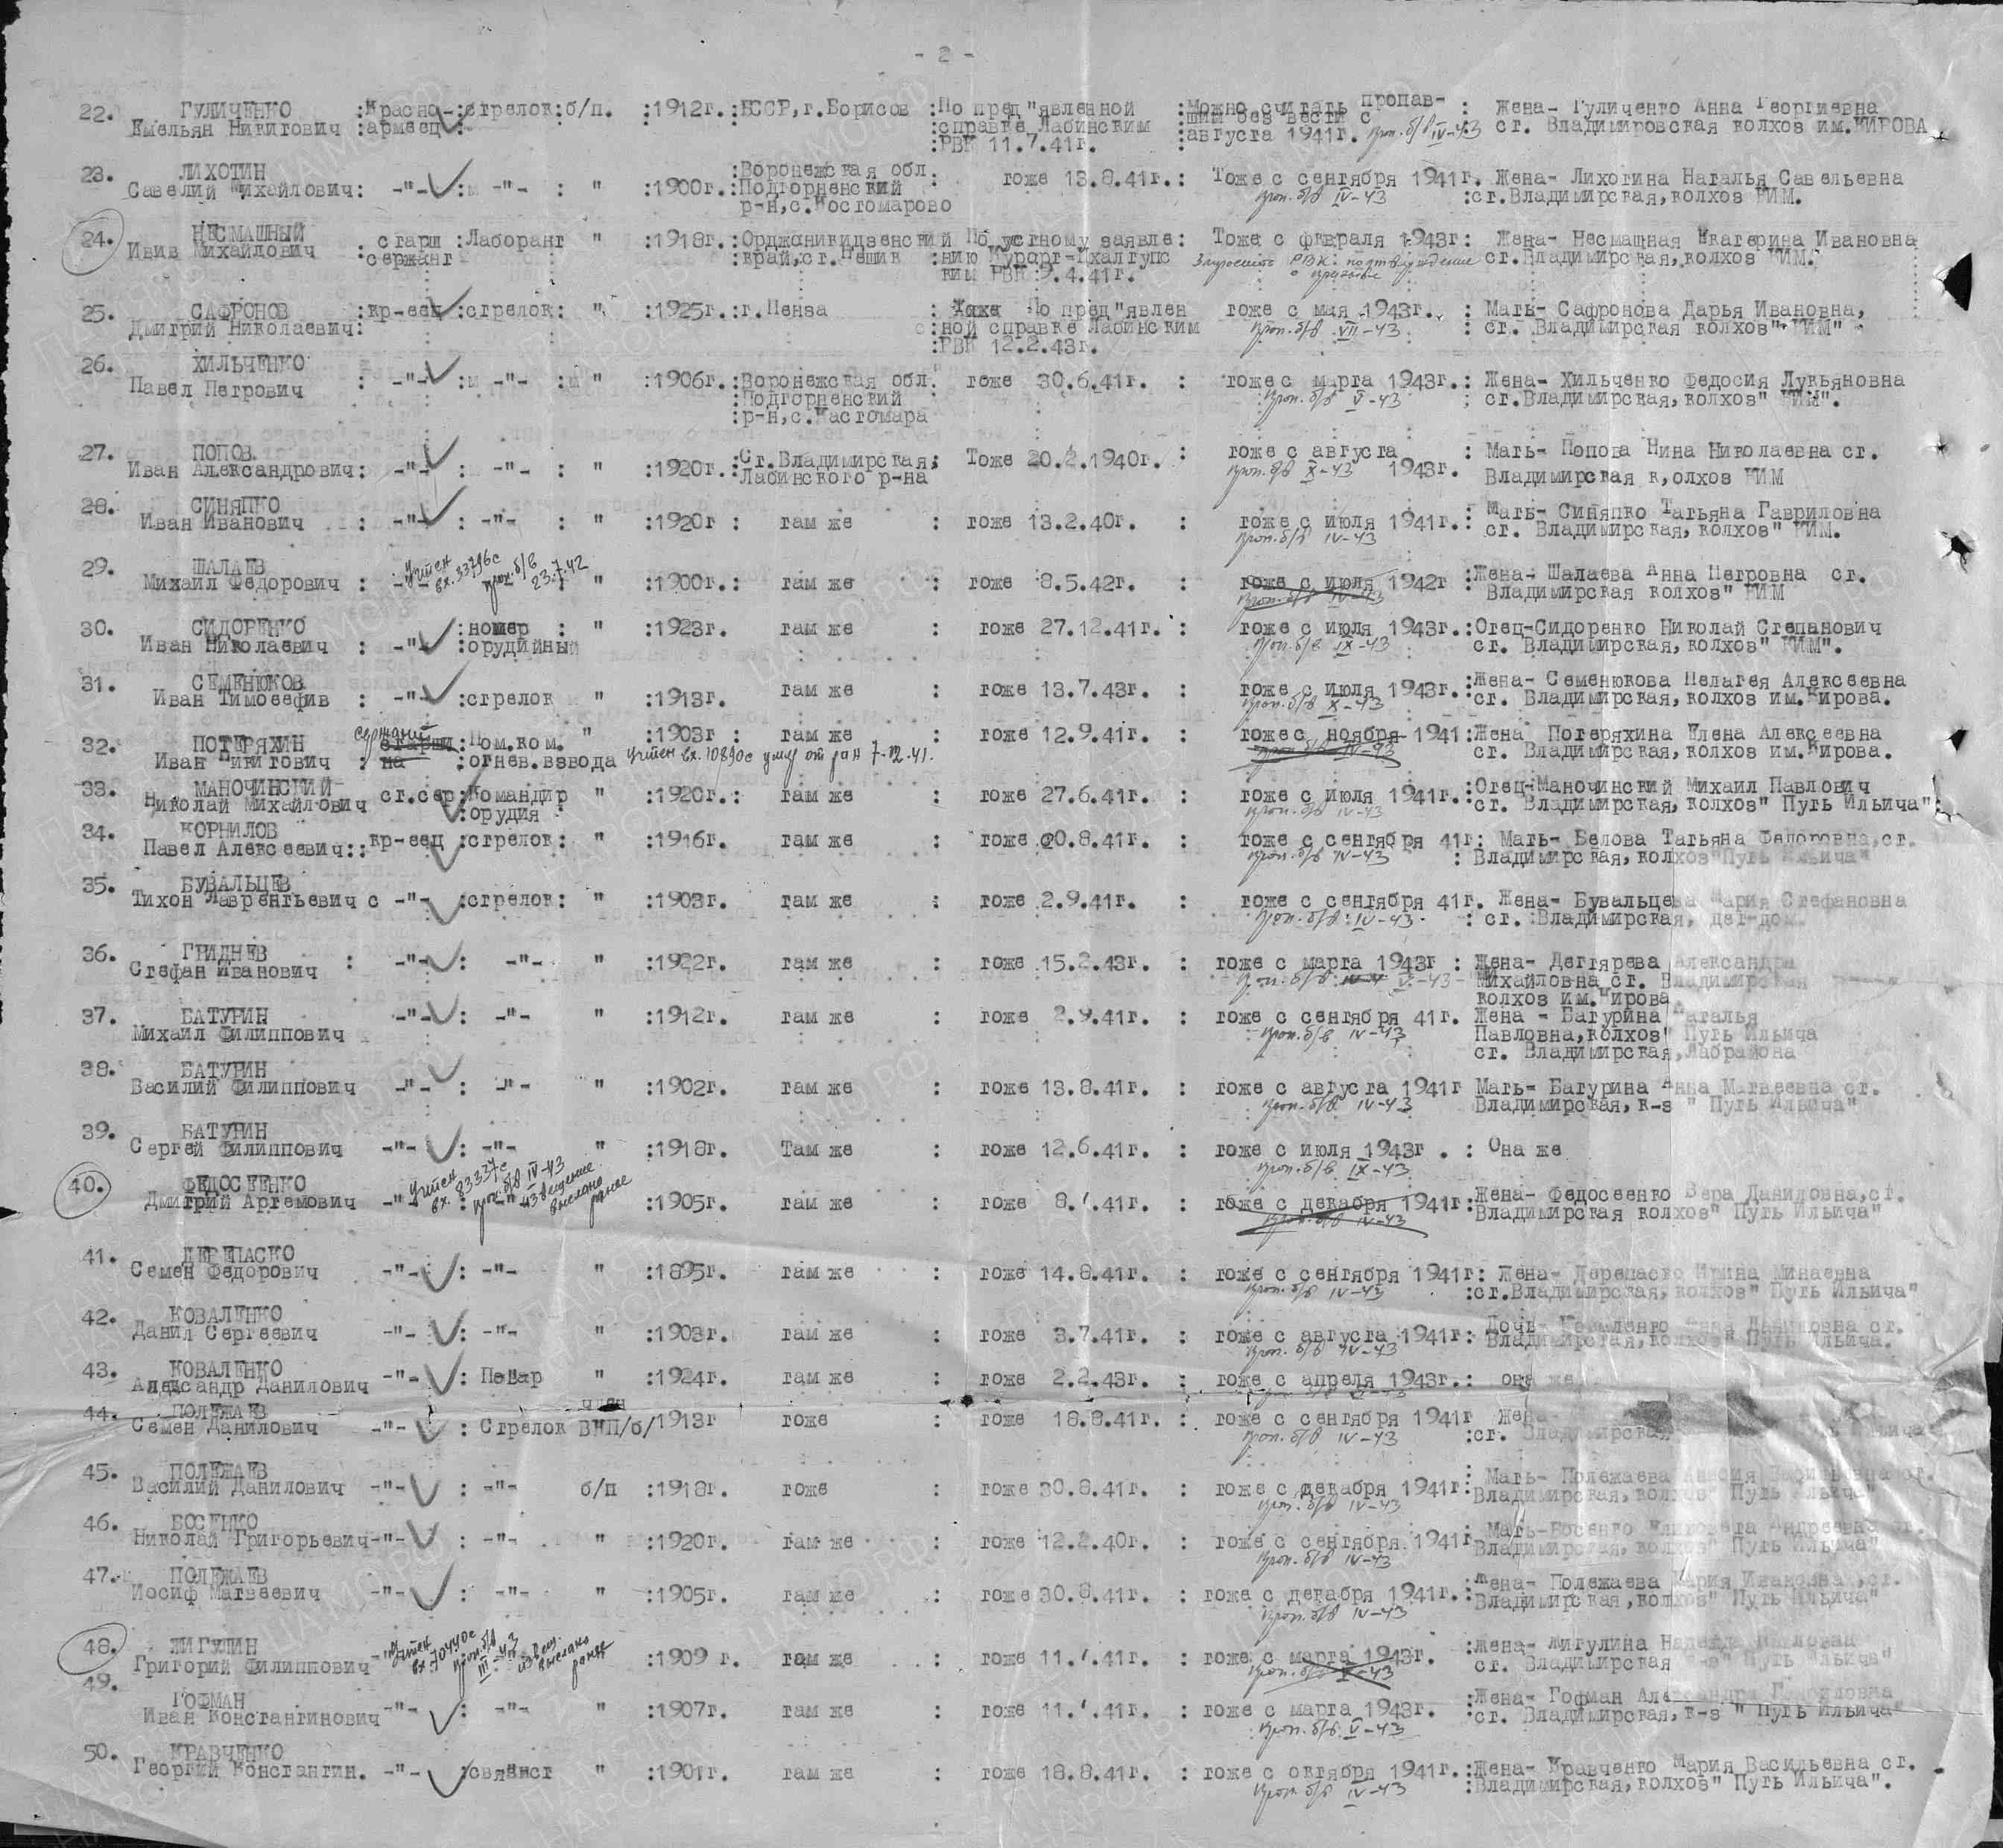 - 2 -
22. ГУЛИЧЕНКО :Красно-:стрелок:б/п. :1912г.:БССР,г.Борисов :По пред"явленной :Можно считать пропав- : Жена- Гуличенко Анна Георгиевна
Емельян Никитович :армеец : : : :справке Лабинским :шим без вести с : ст. Владимировская колхоз им.КИРОВА
:РВК 11.7.41г. :августа 1941г. проп. б/в IV-43
23. ЛИХОТИН :Воронежская обл.
Савелий Михайлович: -"- : -"- : " :1900г.:Подгорненский тоже 13.8.41г.: Тоже с сентября 1941г. Жена- Лихотина Наталья Савельевна
р-н,с.Костомарово проп. б/в IV-43 :ст.Владимирская,колхоз КИМ.
24. НЕСМАШНЫЙ : старш :Лаборант " :1918г.:Орджоникидзенский По устному заявле: Тоже с февраля 1943г: Жена- Несмашная Екатерина Ивановна
Ивив Михайлович :сержант :край,ст. :нию Курорт-Цхалтупс Запросить РВК: подтверждение ст.Владимирская,колхоз КИМ.
ким РВК 9.4.41г. о призыве
25. САФРОНОВ :кр-еец :стрелок: " :1925г.:г.Пенза : По пред"явлен тоже с мая 1943г. : Мать- Сафронова Дарья Ивановна,
Дмитрий Николаевич: :ной справке Лабинским проп. б/в VII-43 : ст. Владимирская колхоз" КИМ"
:РВК 12.2.43г.
26. ХИЛЬЧЕНКО
Павел Петрович : -"- : -"- : " :1906г.:Воронежская обл. тоже 30.6.41г. : тоже с марта 1943г.: Жена- Хильченко Федосия Лукьяновна
:Подгорненский проп. б/в V-43 : ст.Владимирская,колхоз" КИМ".
:р-н,с.Кастомара
27. ПОПОВ :Ст.Владимирская, Тоже 20.2.1940г. : тоже с августа : Мать- Попова Нина Николаевна ст.
Иван Александрович: -"- : -"- : " :1920г.:Лабинского р-на проп. б/в X-43 1943г. Владимирская к,олхоз КИМ
28. СИНЯПКО : Мать- Синяпко Татьяна Гавриловна
Иван Иванович : -"- : -"- : " :1920г : там же : тоже 13.2.40г. : тоже с июля 1941г.: ст. Владимирская, колхоз" КИМ.
проп. б/в IV-43
29. ШАЛАЕВ учтен вх.33796с проп. б/в 23.7.42
Михаил Федорович : -"- : " :1900г.: там же : тоже 8.5.42г. : тоже с июля 1942г :Жена- Шалаева Анна Петровна ст.
проп. б/в IV-43 Владимирская колхоз" КИМ
30. СИДОРЕНКО :номер : " :1923г. там же : тоже 27.12.41г. : тоже с июля 1943г.:Отец-Сидоренко Николай Степанович
Иван Николаевич : -"- :орудийный проп. б/в IX-43 ст. Владимирская, колхоз" КИМ".
31. СЕМЕНЮКОВ там же : тоже 13.7.43г. : тоже с июля 1943г.:Жена- Семенюкова Пелагея Алексеевна
Иван Тимоеефив : -"- :стрелок " :1913г. проп. б/в X-43 ст. Владимирская, колхоз им.Кирова.
32. ПОТЕРЯХИН сержант старши :Пом.ком. " :1903г : там же : тоже 12.9.41г. : тоже с ноября 1941:Жена Потеряхина Елена Алексеевна
Иван Никитович : на :огнев.взвода учтен вх.10890с умер от ран 7-12-41. проп. б/в IV-43 ст. Владимирская, колхоз им.Кирова.
33. МАНОЧИНСКИЙ ст.сер:Командир " :1920г.: там же : тоже 27.6.41г. : тоже с июля 1941г.:Отец-Маночинский Михаил Павлович
Николай Михайлович :орудия : проп. б/в IV-43 :ст. Владимирская,колхоз" Путь Ильича"
34. КОРНИЛОВ
Павел Алексеевич::кр-еец :стрелок: " :1916г. там же : тоже 20.8.41г. : тоже с сентября 41г: Мать- Белова Татьяна Федоровна,ст.
проп. б/в IV-43 : Владимирская, колхоз"Путь Ильича"
35. БУВАЛЬЦЕВ
Тихон Лаврентьевич с -"- :стрелок: " :1903г. там же : тоже 2.9.41г. : тоже с сентября 41г. Жена- Бувальцева Мария Стефановна
проп. б/в IV-43 : ст. Владимирская, дет-дом.
36. ГРИДНЕВ
Стефан Иванович : -"- : -"- " :1922г. там же : тоже 15.2.43г. : тоже с марта 1943г : Жена- Дегтярева Александра
проп. б/в V-43 Михайловна ст. Владимирская
колхоз им.Кирова
37. БАТУРИН -"- : -"- " :1912г. там же : тоже 2.9.41г. : тоже с сентября 41г. Жена - Батурина Наталья
Михаил Филиппович проп. б/в IV-43 Павловна,колхоз" Путь Ильича
ст. Владимирская,Лабрайона
38. БАТУРИН
Василий Филиппович -"- : -"- " :1902г. там же : тоже 13.8.41г. : тоже с августа 1941г Мать- Батурина Анна Матвеевна ст.
проп. б/в IV-43 Владимирская, к-з " Путь Ильича"
39. БАТУРИН
Сергей Филиппович -"- : -"- " :1918г. Там же : тоже 12.6.41г. : тоже с июля 1943г . : Она же
проп. б/в IX-43
40. ФЕДОСЕЕНКО учтен вх. 83337с проп. б/в IV-43 извещение выслано ранее
Дмитрий Артемович -"- : -"- :1905г. там же : тоже 8. .41г. : тоже с декабря 1941г:Жена- Федосеенко Вера Даниловна,ст.
проп. б/в IV-43 Владимирская колхоз" Путь Ильича"
41. ДЕРЕПАСКО
Семен Федорович -"- : -"- " :1895г. там же : тоже 14.8.41г. : тоже с сентября 1941г: Жена- Дерепаско Ирина Минаевна
проп. б/в IV-43 :ст.Владимирская, колхоз" Путь Ильича"
42. КОВАЛЕНКО Дочь- Коваленко Даниловна ст.
Данил Сергеевич -"- : -"- " :1903г. там же : тоже 3.7.41г. : тоже с августа 1941г: Владимирская,колхоз" Путь Ильича.
проп. б/в IV-43
43. КОВАЛЕНКО -"- : Повар " :1924г. там же : тоже 2.2.43г. : тоже с апреля 1943г.: она же
Александр Данилович
44. ПОЛЕЖАЕВ член
Семен Данилович -"- : Стрелок ВКП/б/1913г тоже : тоже 18.8.41г. : тоже с сентября 1941г Жена-
проп. б/в IV-43 :ст. Владимирская Путь Ильича
45. ПОЛЕЖАЕВ Мать- Полежаева ст.
Василий Данилович -"- : -"- б/п :1918г. тоже : тоже 30.8.41г. : тоже с декабря 1941г: Владимирская, колхоз" Путь Ильича"
проп. б/в IV-43
46. БОСЕНКО : Мать-Босенко Андреевна ст.
Николай Григорьевич-"- : -"- " :1920г. там же : тоже 12.2.40г. : тоже с сентября 1941г Владимирская, колхоз" Путь Ильича"
проп. б/в IV-43
47. ПОЛЕЖАЕВ
Иосиф Матвеевич -"- : -"- " :1905г. там же : тоже 30.8.41г. : тоже с декабря 1941г.:Жена- Полежаева Мария Ивановна ,ст.
проп. б/в IV-43 :Владимирская,колхоз" Путь Ильича"
48. ЖИГУЛИН учтен вх.70440с проп. б/в III-43 извещ. выслано ранее :Жена- Жигулина Надежда Павловна
Григорий Филиппович -"- :1909 г. там же : тоже 11. .41г. : тоже с марта 1943г. ст. Владимирская к-з" Путь Ильича"
49. ГОФМАН -"- : -"- " :1907г. там же : тоже 11. .41г. : тоже с марта 1943г. :Жена- Гофман
Иван Константинович проп. б/в V-43 :ст. Владимирская, к-з " Путь Ильича"
50. КРАВЧЕНКО
Георгий Константин. -"- :связист " :1901г. там же : тоже 18.8.41г. : тоже с октября 1941г.:Жена- Кравченко Мария Васильевна ст.
проп. б/в IV-43 :Владимирская,колхоз" Путь Ильича".